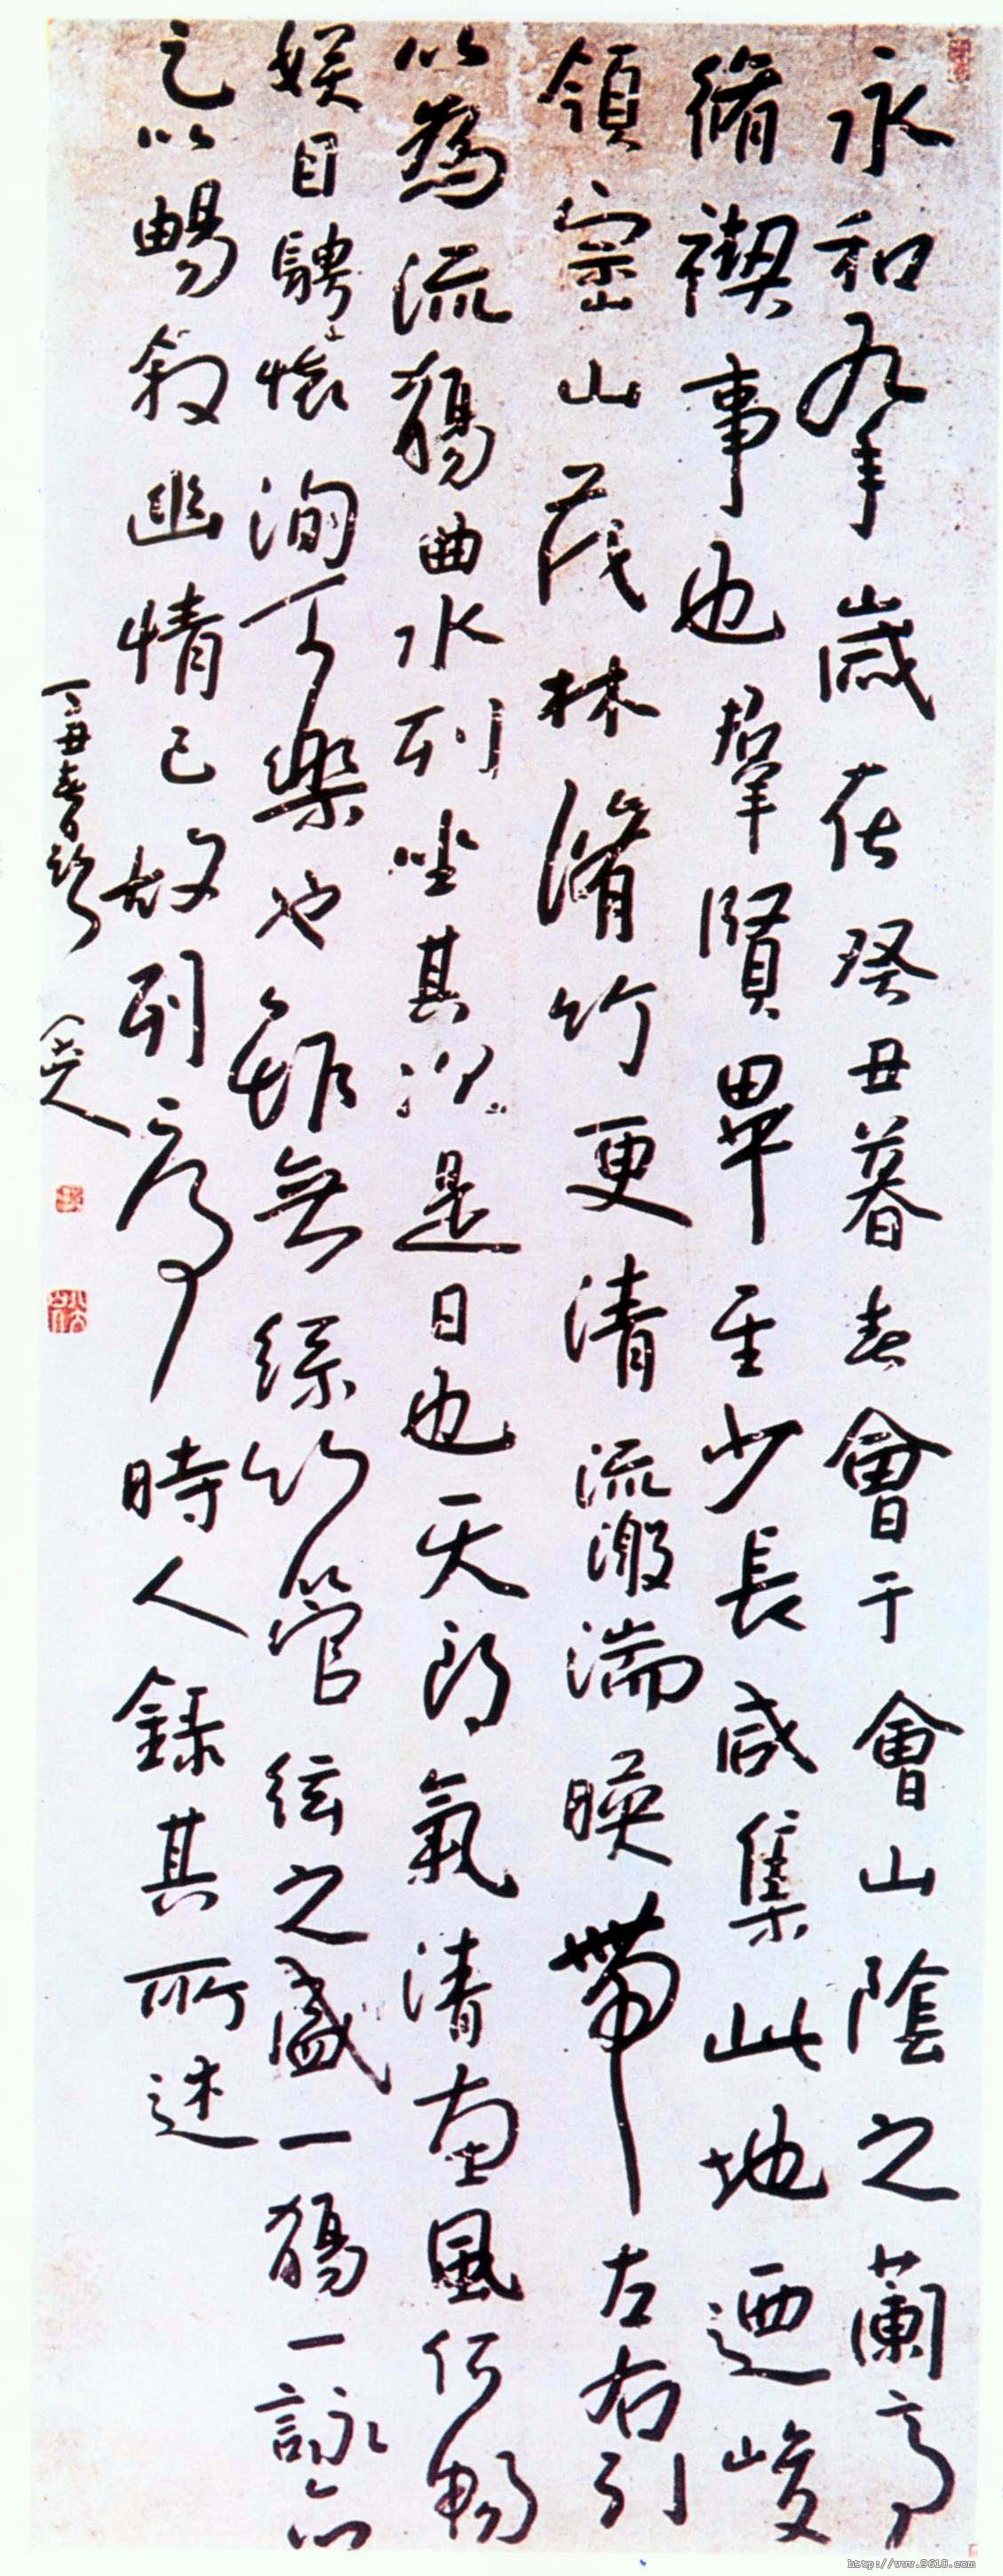 永和九年歲在癸丑暮春會于會山陰之蘭亭
脩禊事也羣賢畢至少長咸集此地迺峻
領崇山茂林脩竹更清流激湍暎帶左右引
以為流觴曲水列坐其次是日也天朗氣清惠風何暢
娛目騁懷洵可樂也雖無絲竹管絃之盛一觴一詠亦
足以暢敘幽情已故列序時人錄其所述
丁丑春日
八大山人
http://www.9610.com